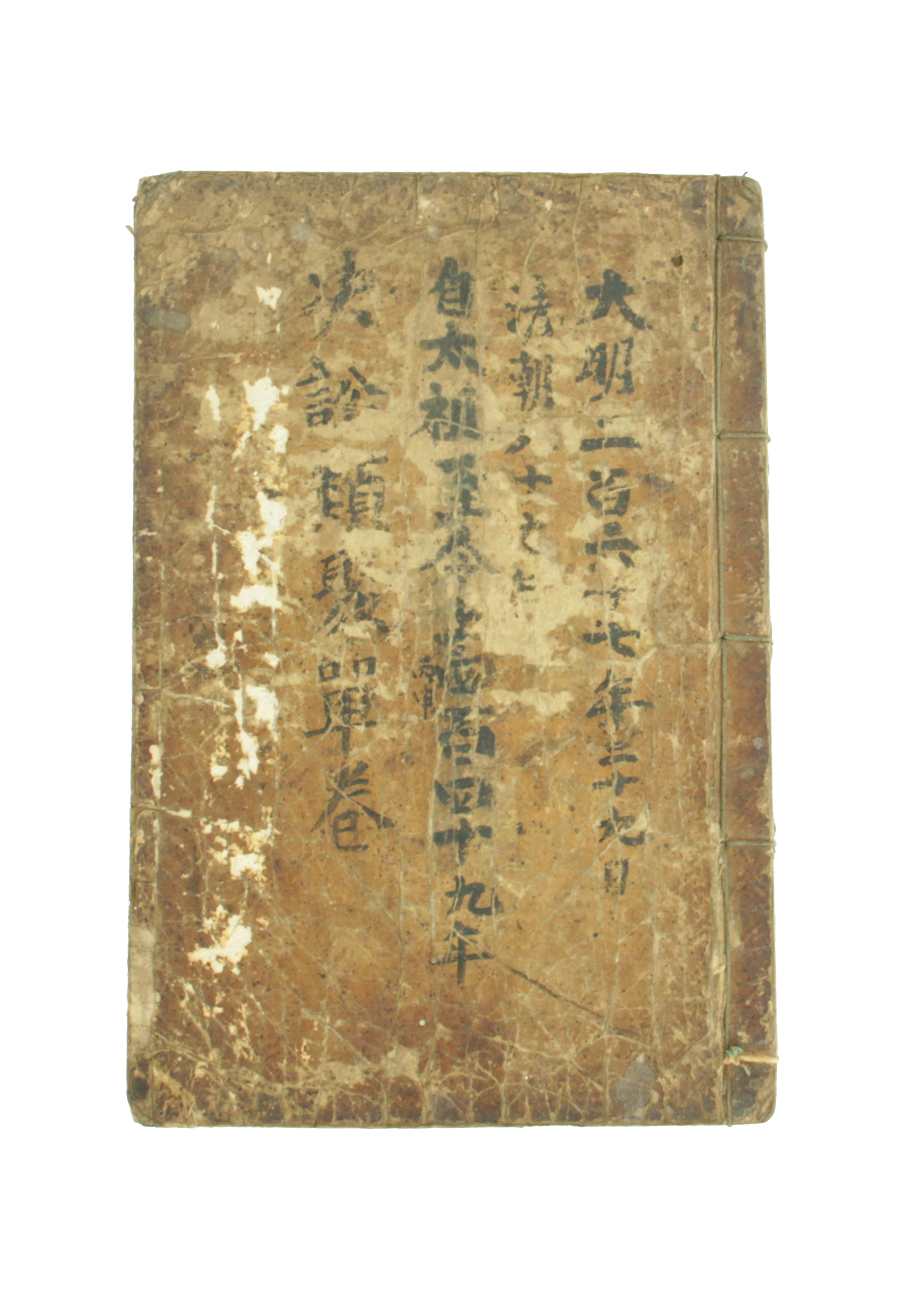 大明二百六十七年三十九日
清朝八十七
自太祖至今壹百四十九年
决訟類聚單卷